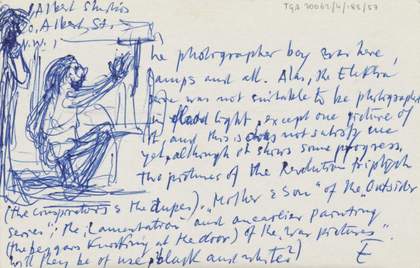 TGA 20062/4/182/57
Albert Studios
Albert St.
N.W.1
The photographer boy was here,
lamps and all. Alas, the Elektra
was not suitable to be photographed
in flood light, except one picture of
it and this does not satisfy me
yet, although it shows some progress,
two pictures of the Revolution triptych
(the conspirators & the dupes), "Mother & Son" of the "Outsider
series", the "Lamentation" and an earlier painting
(the beggars knocking at the door) of the "war pictures".
Will they be of use, black and white?)
E